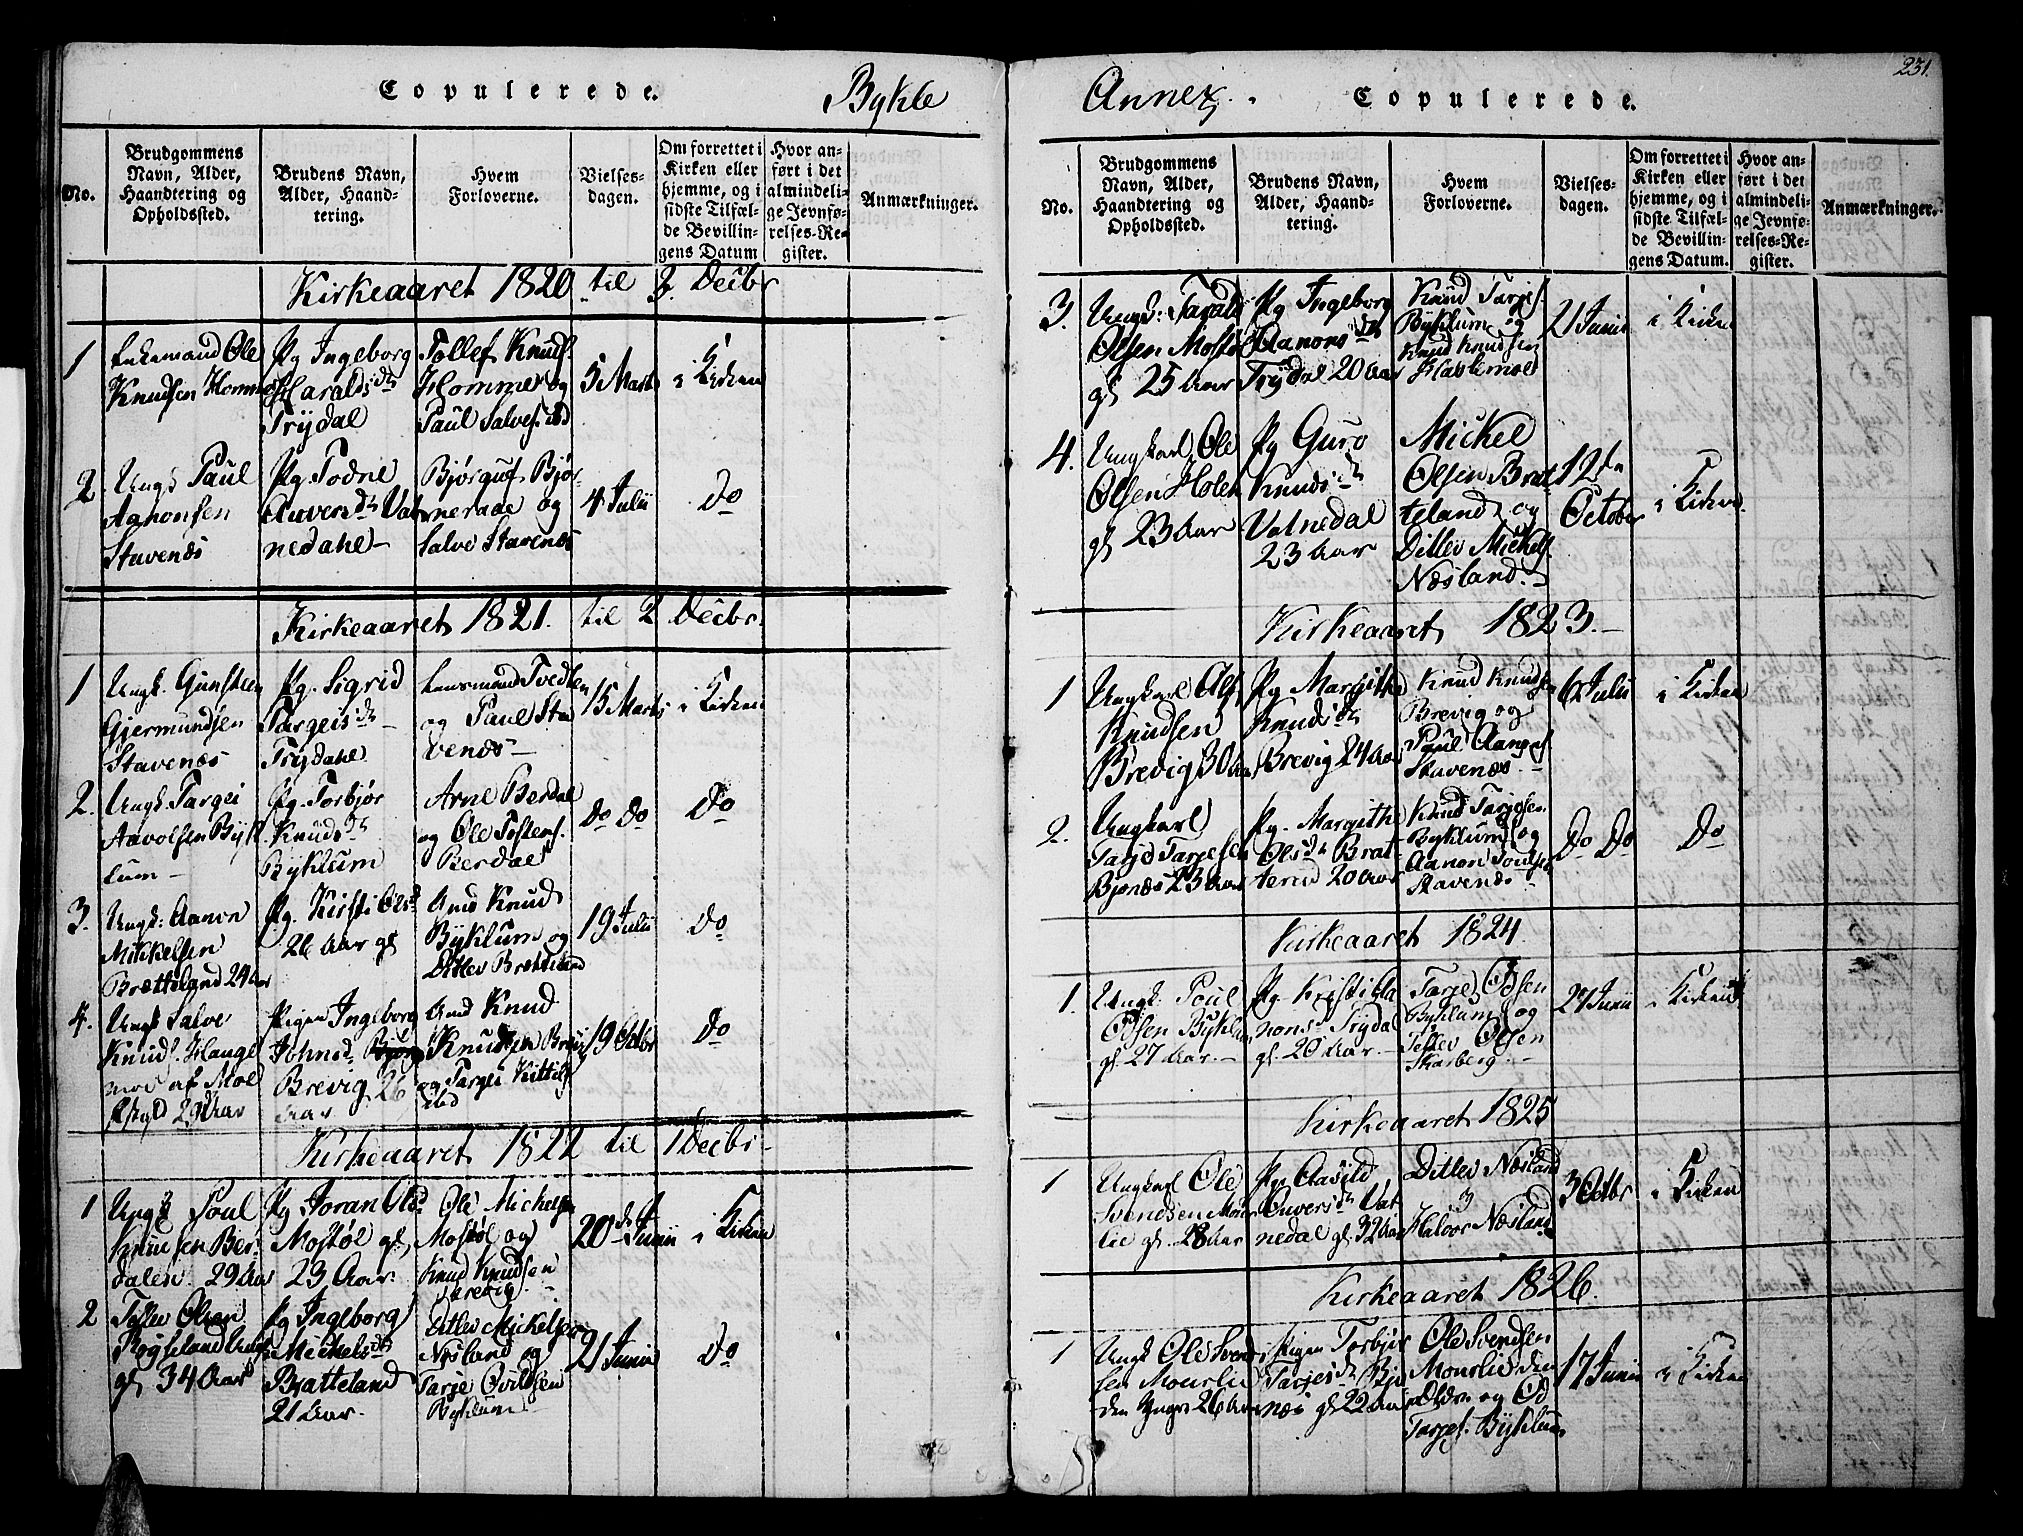 Copulerede.
Bykle
No.
Brudgommens
Navn, Alder,
Haandtering og
Opholdssted.
Brudens Navn,
Alder, Haand-
tering.
Hvem
Forloverne.
Vielses-
dagen.
Om forrettet i
Kirken eller
hjemme, og i
sidste Tilfæl-
de Bevillin-
gens Datum
Hvor an-
ført i det
almindeli-
ge Jevnfø-
relses-Re-
gister.
Anmærkninger.
Kirkeaaret 1820 til 3. Decbr
1
Enkemand Ole
Knudsen Hommer
Pg Ingeborg
Haralds dr
Trydal
Tollef Knuds.
Hommer og
Paul Salves. ibd
5 Marts
i Kirken
2
Ungk Paul
Aanonsen
Stavenæs
Pg. Todne
Auvers dr Vat
nedahl
Bjørguf Bjør-
neraae og
Salve Stavenæs
4 Julii
do
Kirkeaaret 1821. til 2 Decbr.
1
Ungk. Gunsteen
Gjermundsen
Stavenæs
Pg. Sigrid
Targeis dr
Trydahl
Lensmand Tvedten
og Paul Sta
venæs
15 Marts
i Kirken
2.
Ungk. Targei
Aavolsen Bykl
lum
Pg. Torbjør
Knuds dr
Byklum
Arne Berdal
og Ole Tostens.
Berdal
do do
do
3.
Ungk: Aanon
Mikkelsen
Brætteland 24 Aar
Pg. Kirsti Ols d
26 Aar gl
Gmd Knud
Byklum og
Ditlev Brætteland
19 Julii
do
4.
Ungk Salve
Knuds. Hauge
moe af Moe
29 Aar
Pigen Ingeborg
Johns d
Brevig 26
Aar
Gmd Knud
Knudsen Brevig
og Targei Kittils
ibid
19 Octbr
do
Kirkeaaret 1822 til 1 Decbr
1
Ungk Poul
Knudsen Ber-
dalen 29 Aar
Pg Joran Ols d
Mostøl gl,
23 Aar
Ole Michelsen
Mostøl og
Knud Knudsen
Brevig
20 de Junii
i Kirken
2
Tellev Olsen
Røyseland
gl 34 Aar
Pg Ingeborg
Michels dr
Bratteland
21 Aar.
Ditlev Mickelsen
Næsland og
Tarje Ovildsen
Byklum
21 Junii
do
231.
Annex.
Copulerede.
No.
Brudgommens
Navn, Alder,
Haandtering og
Opholdssted.
Brudens Navn,
Alder, Haand-
tering.
Hvem
Forloverne.
Vielses-
dagen.
Om forrettet i
Kirken eller
hjemme, og i
sidste Tilfæl-
de Bevillin-
gens Datum.
Hvor an-
ført i det
almindeli-
ge Jevnfø-
relses-Re-
gister.
Anmærkninger.
3.
Ungk: Tarald
Olsen Mostøl
gl 25 Aar
Pg Ingeborg
Aanons dr
Trydal 20 Aar
Knud Tarjes.
Byklum og
Knud Knudsen
21 Junii
i Kirken
4.
Ungkarl Ole
Olsen Holen
gl 23 Aar
Pg Guro
Knuds dr
Valnedal
23 Aar
Mickel
Olsen Brat
teland og
Ditlev Mickels.
Næsland.
12 te
October
i Kirken
Kirkeaaret 1823.
1
Ungkarl Ols.
Knudsen
Brevig 30 Aar
Pg Margithe
Knuds dr
Brevig 24 Aar
Knud Knudsen
Brevig og
Paul Aanons.
Stavenæs
6 Julii
i Kirken
2.
Ungkarl
Tarjd Tarjesen
Bjonæs 23 Aar
Pg. Margith
Ols dr Brat-
terud 20 Aar
Knud Tarjesen
Byklum og
Aanon Poulsen
Stavenæs
do do
do
Kirkeaaret 1824.
1.
Ungk. Poul
Olsen Byklum
gl. 27 Aar.
Pg. Kristi Aa
nons d Trydal
gl. 20 Aar.
Tarje Olsen
Byklum og
Tellev Olsen
Skarberg.
27 Junii
i Kirken
Kirkeaaret 1825
1
Ungkarl Ole
Svendsen Mour
lie gl 28 Aar
Pg Aasild
Ouvers dr Vat
nedal gl 32 Aar
Ditlev Næsland
Halvor Næsland
3 Octbr
i Kirken
Kirkeaaret 1826.
1
Ungk Ole Svend
sen Mourlie
den Yngre 26 Aar
Pigen Torbjør
Tarjes dr Bjo
næs gl 22 Aar
Ole Svendsen
Mourlie den
Ældre og Od
Tarjes. Byklum
17 Junii
i Kirken